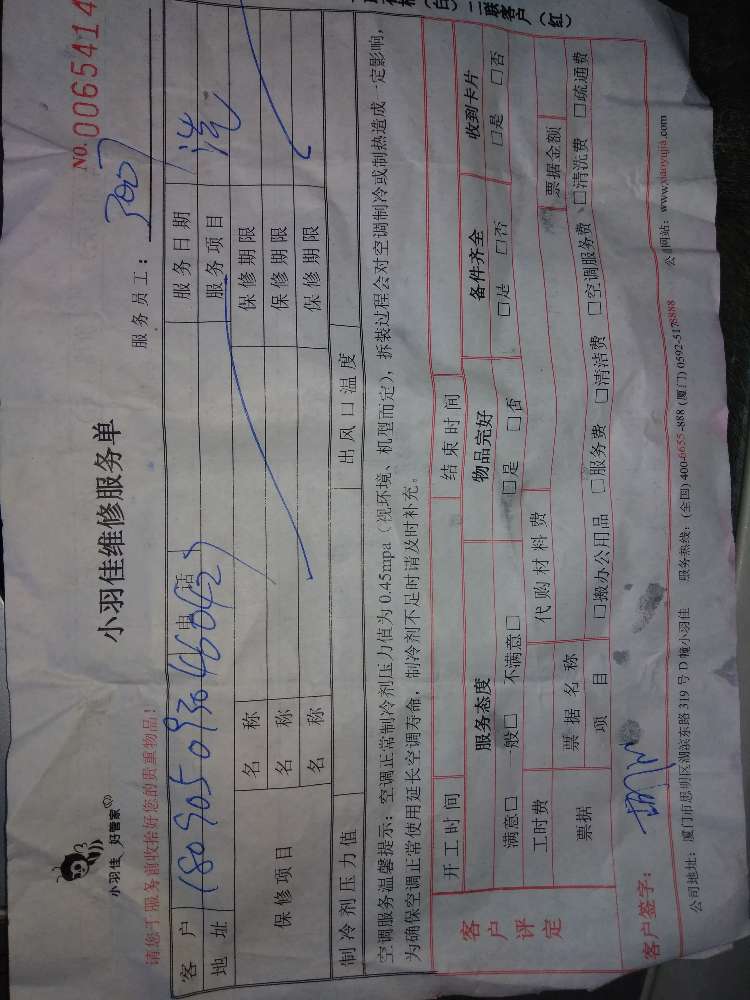 小羽佳 好管家
小羽佳维修服务单
NO. 0065414
请您于服务前收拾好您的贵重物品!
服务员工: 3007
客户 电话 服务日期
地址 服务项目 洗
保修项目 名称 保修期限
名称 保修期限
名称 保修期限
制冷剂压力值 出风口温度
空调服务温馨提示: 空调正常制冷剂压力值为0.45mpa (视环境、机型而定), 拆装过程会对空调制冷或制热造成一定影响,
为确保空调正常使用延长空调寿命, 制冷剂不足时请及时补充。
客户评定 开工时间 结束时间
服务态度 物品完好 备件齐全 收到卡片
满意□ 一般□ 不满意□ □是 □否 □是 □否 □是 □否
工时费 代购材料费
票据 票据名称 票据金额
项目 □搬办公用品 □服务费 □清洁费 □空调服务费 □清洗费 □疏通费
客户签字:
公司地址: 厦门市思明区湖滨东路319号D幢小羽佳 服务热线: (全国) 400-6655-888 (厦门) 0592-5178888 公司网站: www.xiaoyujia.com
二联客户 (红)